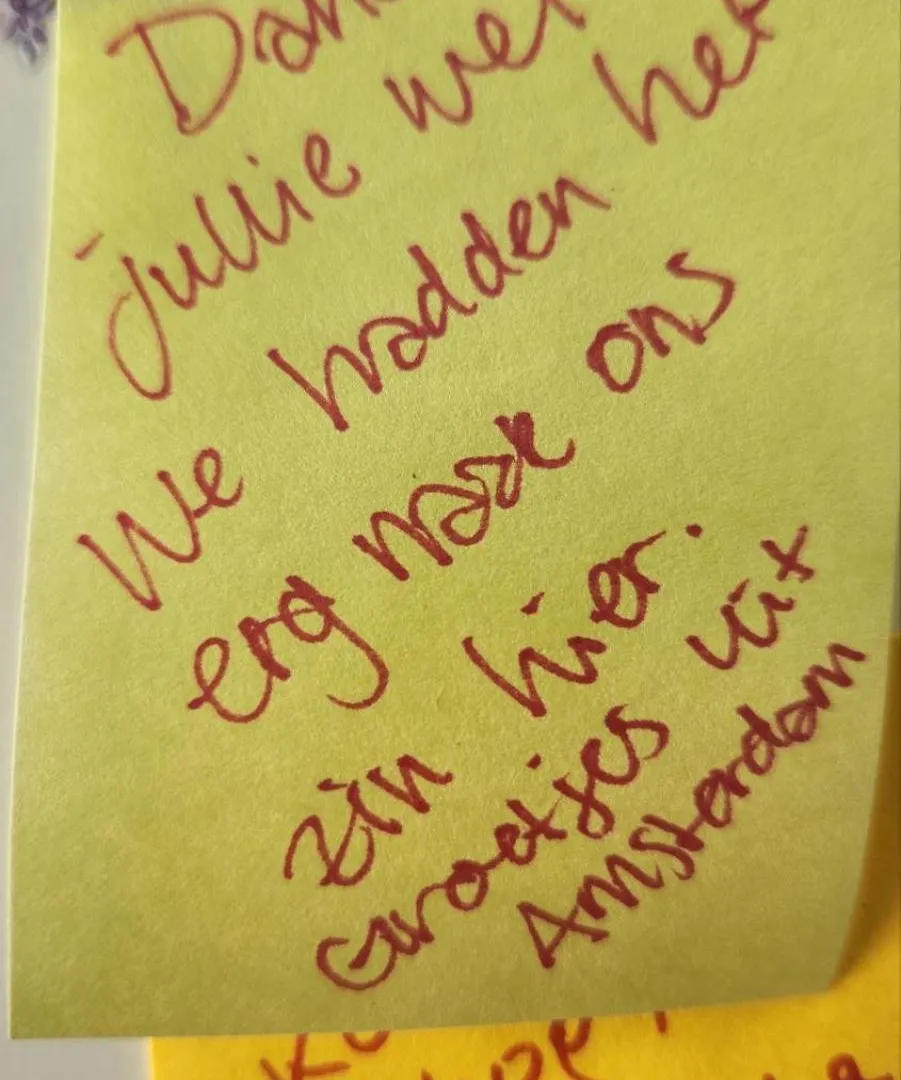 Dan
jullie wel
We hadden het
erg naar ons
zin hier.
Groetjes uit
Amsterdam